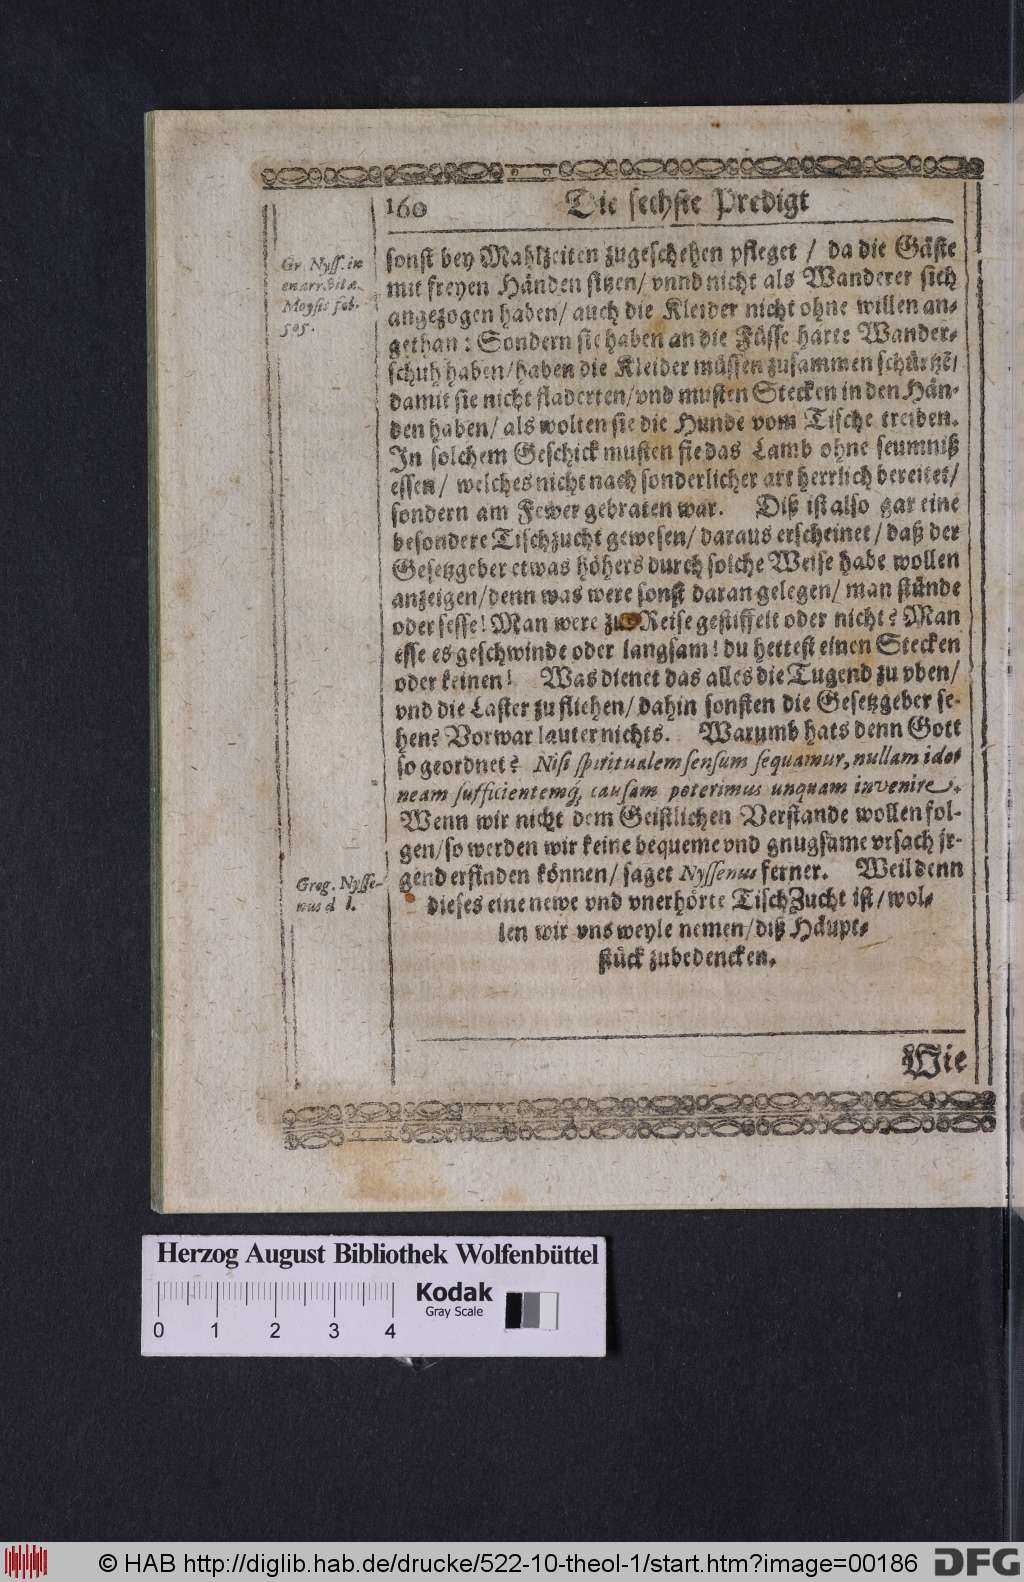 160 Die sechste Predigt
Gr. Nyss. in
enarr. vitæ
Moysis fol.
505.
sonst bey Mahlzeiten zugeschehen pfleget / da die Gäste
mit freyen Händen sitzen / vnnd nicht als Wanderer sich
angezogen haben / auch die Kleider nicht ohne willen an-
gethan : Sondern sie haben an die Füsse harte Wander-
schuh haben / haben die Kleider müssen zusammen schürtzẽ /
damit sie nicht fladerten / vnd musten Stecken in den Hän-
den haben / als wolten sie die Hunde vom Tische treiben.
In solchem Geschick musten sie das Lamb ohne seumniß
essen / welches nicht nach sonderlicher art herrlich bereitet /
sondern am Fewer gebraten war. Diß ist also gar eine
besondere Tischzucht gewesen / daraus erscheinet / daß der
Gesetzgeber etwas höhers durch solche Weise habe wollen
anzeigen / denn was were sonst daran gelegen / man stünde
oder sesse! Man were zur Reise gestiffelt oder nicht? Man
esse es geschwinde oder langsam! du hettest einen Stecken
oder keinen! Was dienet das alles die Tugend zu vben /
vnd die Laster zu fliehen / dahin sonsten die Gesetzgeber se-
hen? Vorwar lauter nichts. Warumb hats denn Gott
so geordnet? Nisi spiritualem sensum sequamur, nullam ido-
neam sufficientemq́; causam poterimus unquam invenire.
Wenn wir nicht dem Geistlichen Verstande wollen fol-
gen / so werden wir keine bequeme vnd gnugsame vrsach ir-
gend erfinden können / saget Nyssenus ferner. Weil denn
Greg. Nysse-
nus d. l.
dieses eine newe vnd vnerhörte TischZucht ist / wol-
len wir vns weyle nemen / diß Häupt-
stück zubedencken.
Wie
Herzog August Bibliothek Wolfenbüttel
Kodak
Gray Scale
0 1 2 3 4
© HAB http://diglib.hab.de/drucke/522-10-theol-1/start.htm?image=00186
DFG